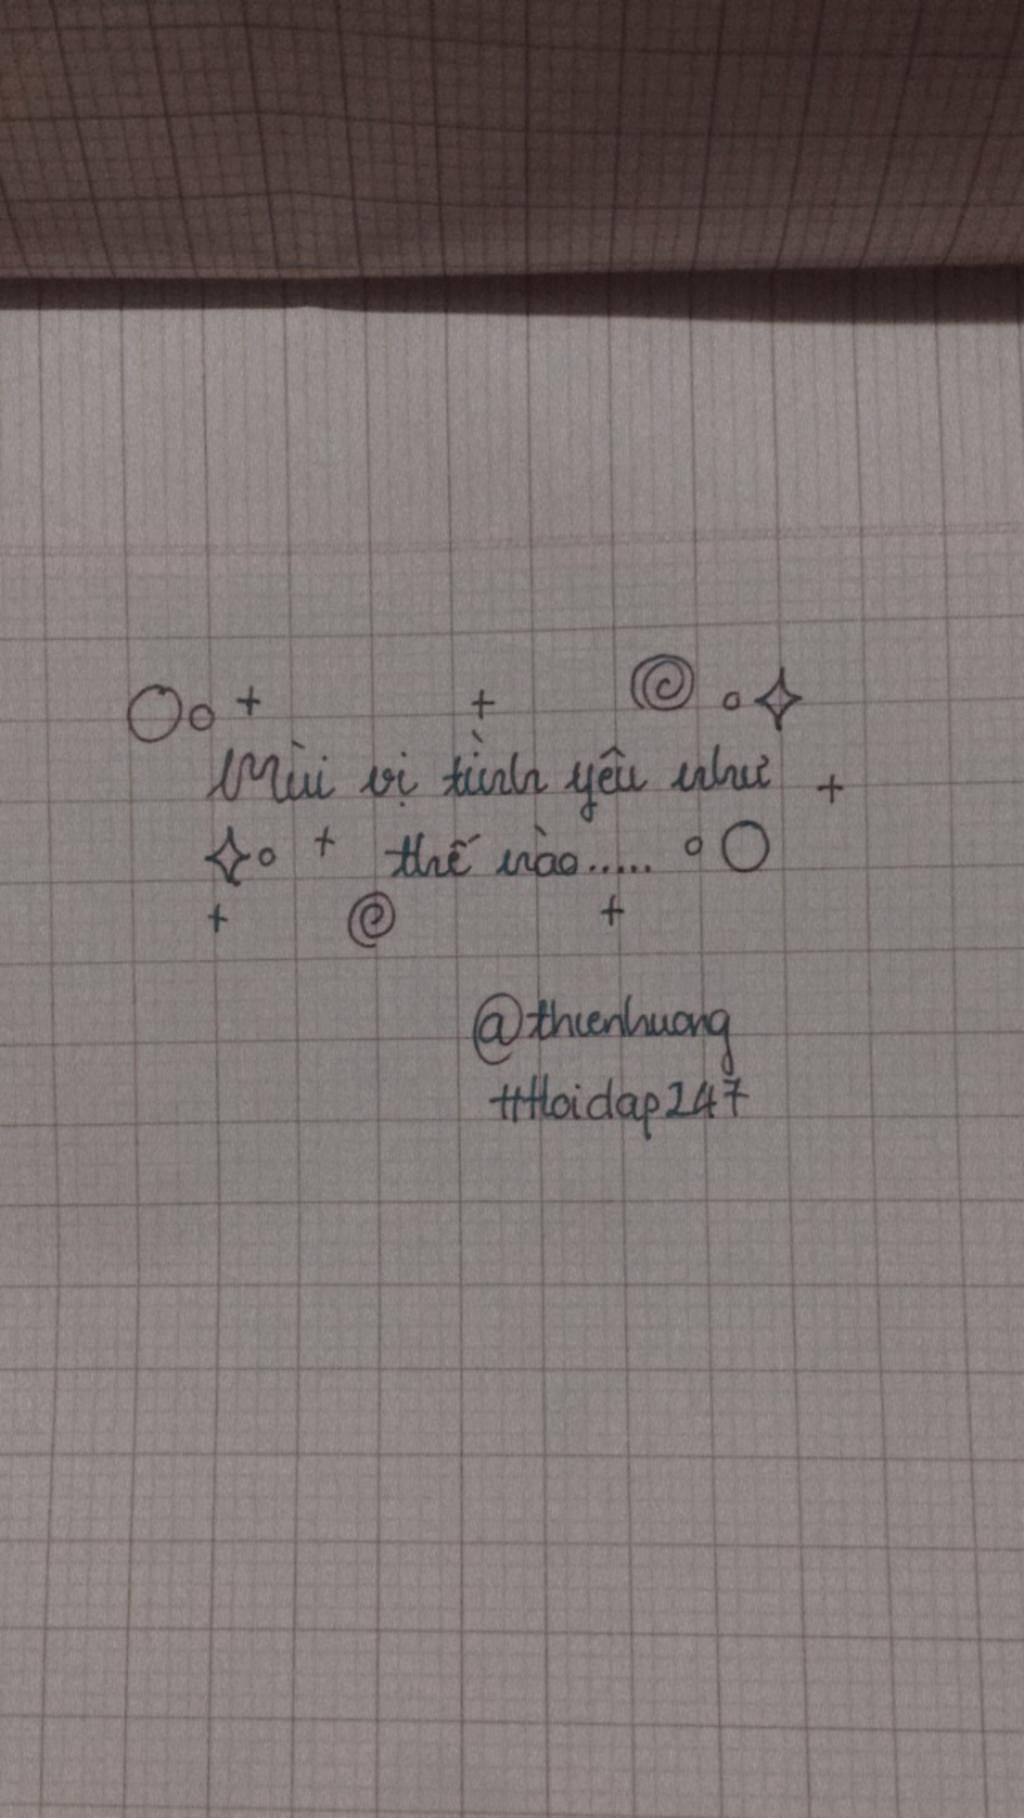 Mùi vị tình yêu như
thế nào.....
@thienhuong
#Hoidap247